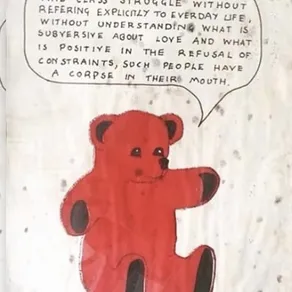 AND CLASS STRUGGLE WITHOUT
REFERING EXPLICITLY TO EVERDAY LIFE,
WITHOUT UNDERSTANDING WHAT IS
SUBVERSIVE ABOUT LOVE AND WHAT
IS POSITIVE IN THE REFUSAL OF
CONSTRAINTS, SUCH PEOPLE HAVE
A CORPSE IN THEIR MOUTH.